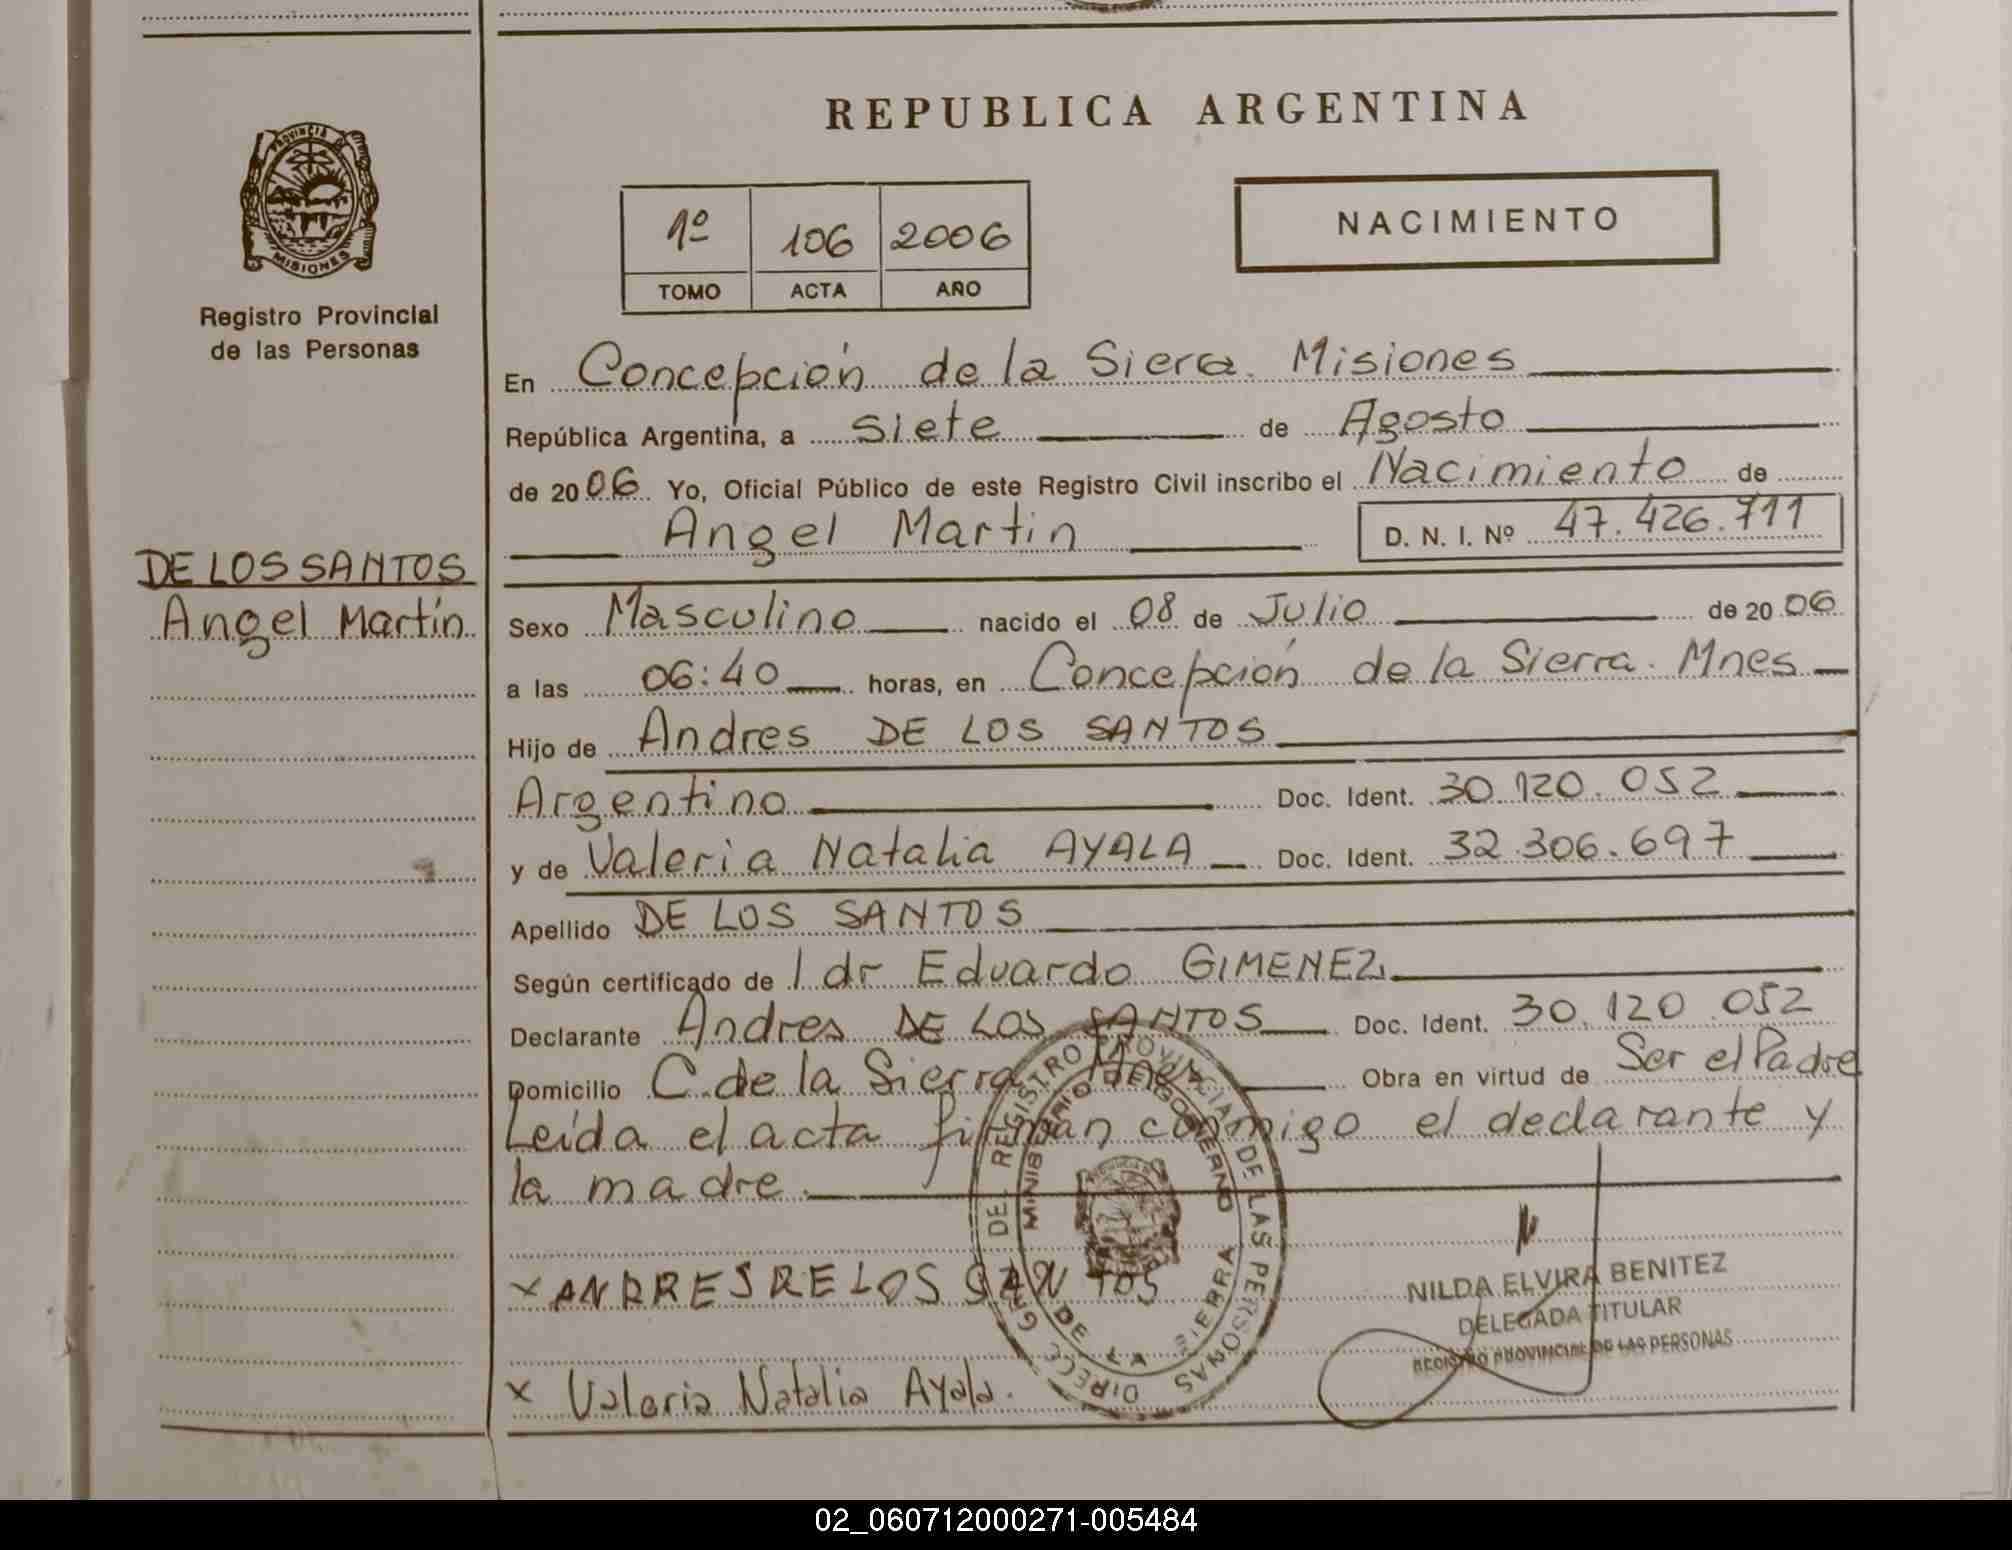 REPUBLICA ARGENTINA
PROVINCIA DE
MISIONES
Registro Provincial
de las Personas
1º 106 2006
TOMO ACTA AÑO
NACIMIENTO
DE LOS SANTOS
Angel Martín
En Concepción de la Sierra. Misiones
República Argentina, a siete de Agosto
de 2006 Yo, Oficial Público de este Registro Civil inscribo el Nacimiento de
Angel Martin D. N. I. Nº 47.426.711
Sexo Masculino nacido el 08 de Julio de 2006
a las 06:40 horas, en Concepción de la Sierra. Mnes
Hijo de Andres DE LOS SANTOS
Argentino Doc. Ident. 30.120.052
y de Valeria Natalia AYALA Doc. Ident. 32.306.697
Apellido DE LOS SANTOS
Según certificado de l dr Eduardo GIMENEZ
Declarante Andres DE LOS SANTOS Doc. Ident. 30.120.052
Domicilio C. de la Sierra Mnes Obra en virtud de Ser el Padre
Leída el acta firman conmigo el declarante y
la madre.
DIRECC. GRAL. DEL REGISTRO PROVINCIAL DE LAS PERSONAS
MINISTERIO DE GOBIERNO
DE LA SIERRA
x ANRRES RE LOS SAN TOS
x Valeria Natalia Ayala.
NILDA ELVIRA BENITEZ
DELEGADA TITULAR
REGISTRO PROVINCIAL DE LAS PERSONAS
02_060712000271-005484